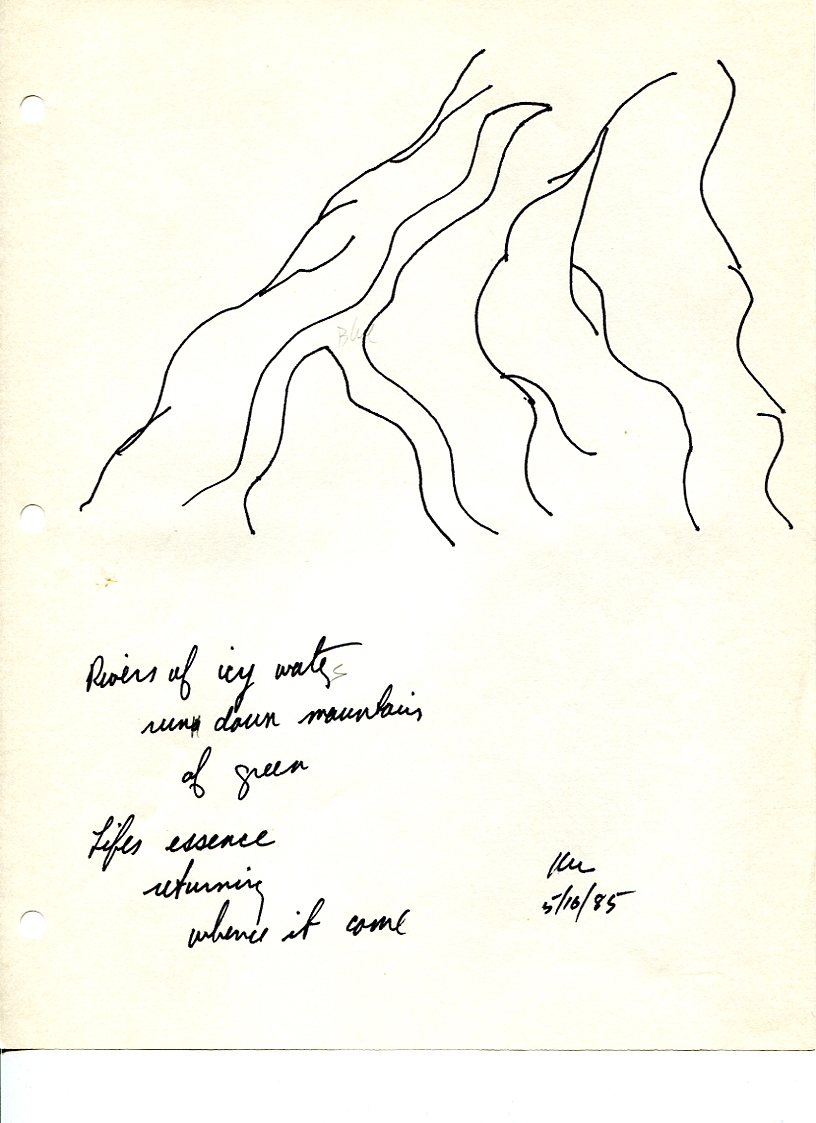 Blue
Rivers of icy waters
run down mountains
of green
Lifes essence
returning
whence it come
5/16/85